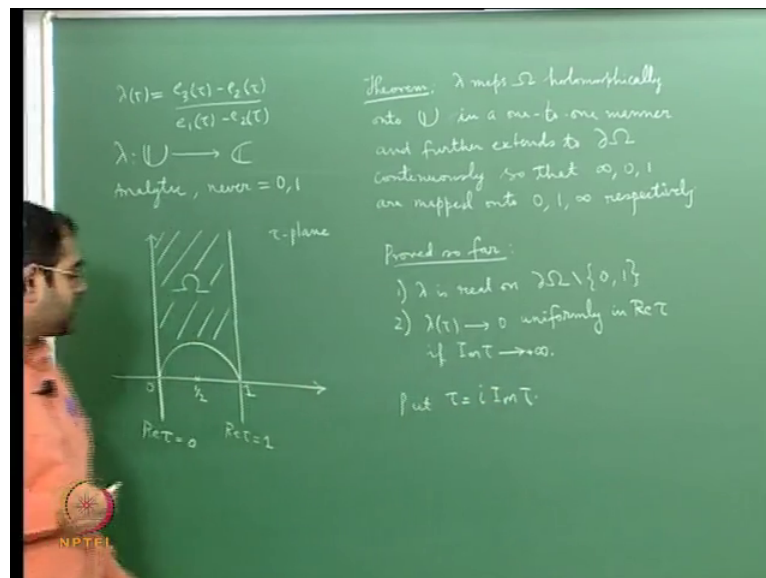 λ(τ) = e₃(τ) - e₂(τ) / e₁(τ) - e₂(τ)
λ: U → ℂ
Analytic, never = 0, 1
τ-plane
Ω
0 1/2 1
Re τ = 0 Re τ = 1
Theorem: λ maps Ω holomorphically
onto U in a one-to-one manner
and further extends to ∂Ω
continuously so that ∞, 0, 1
are mapped onto 0, 1, ∞ respectively
Proved so far:
1) λ is real on ∂Ω \ {0, 1}
2) λ(τ) → 0 uniformly in Re τ
if Im τ → +∞.
Put τ = i Im τ.
NPTEL